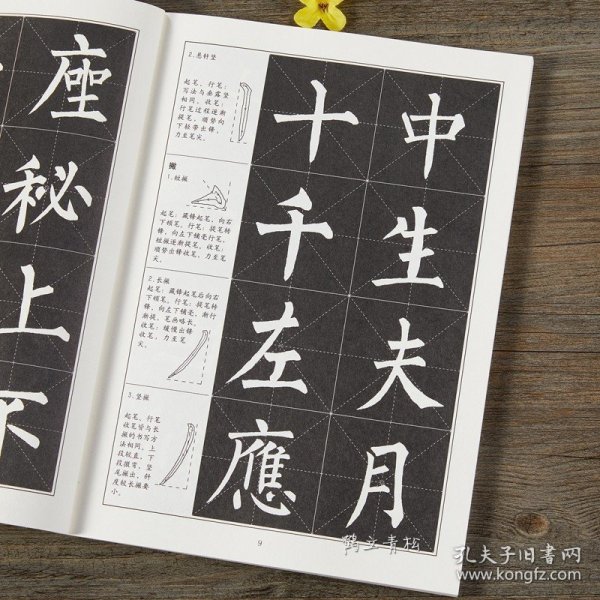 座
秘
上
下
2.悬针竖
起笔、行笔：
写法与垂露竖
相同。收笔：
行笔过程逐渐
提笔，顺势向
下轻带出锋，
力至笔尖。
十
中
撇
1.短撇
起笔：藏锋起笔，向右
下顿笔。行笔：提笔转
锋，向左下铺毫行笔，
短撇逐渐提笔。收笔：
顺势出锋收笔，力至笔
尖。
千
生
2.长撇
起笔：藏锋起笔后向右
下顿笔。行笔：提笔转
锋，向左下铺毫，渐行
渐提，笔画略长。
收笔：缓慢出锋
收笔，力至笔
尖。
左
夫
3.竖撇
起笔、行笔
收笔皆与长
撇的书写方
法相同。上
段较直，下
段微弯，竖
尾撇出，斜
度较长撇要
小。
應
月
9
鹤立青松
孔夫子旧书网
www.kongfz.com